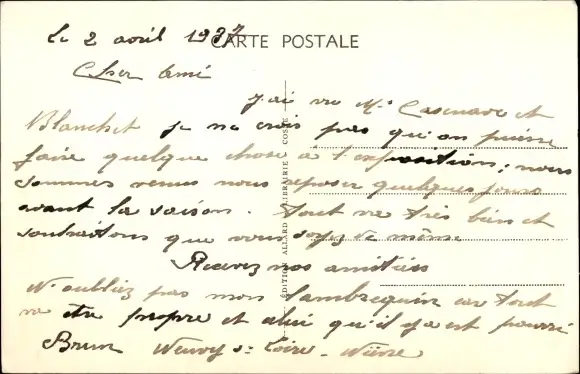 Le 2 avril 1937
CARTE POSTALE
Cher Ami
J'ai vu Mr Casenave et
Blanchet je ne crois pas qu'on puisse
faire quelque chose à l'exposition; nous
sommes venus nous reposer quelques jours
avant la saison. Tout va très bien et
souhaitons que vous soyez de même
Recevez nos amitiés
N'oubliez pas mon lambrequin car tout
va être propre et celui qu'il y a est pourri
Brun Neuvy s- Loire - Nièvre
EDITION ALLARD LIBRAIRIE COSNE